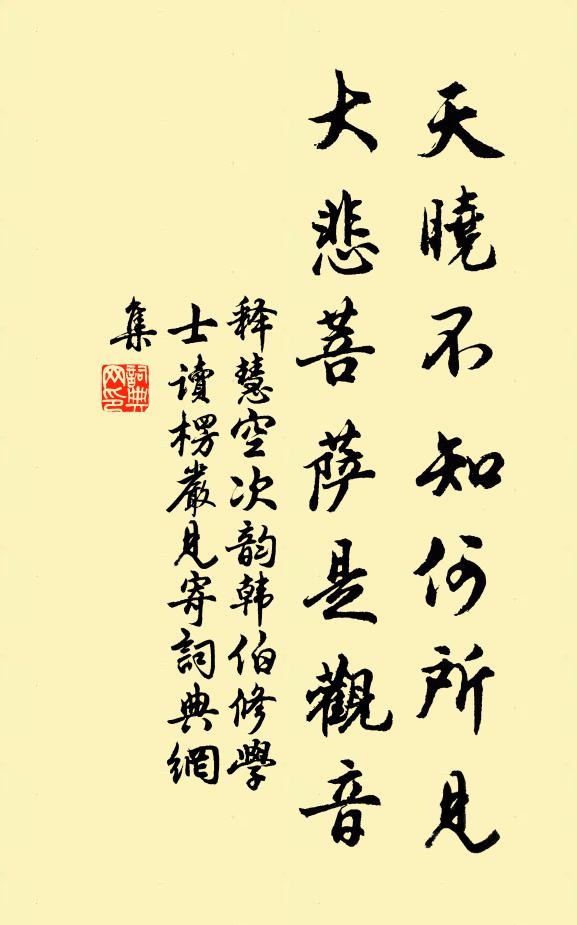 天曉不知何所見
大悲菩薩是觀音
释慧空次韵韩伯修學
士讀楞嚴見寄詞典網
集
詞典
网印